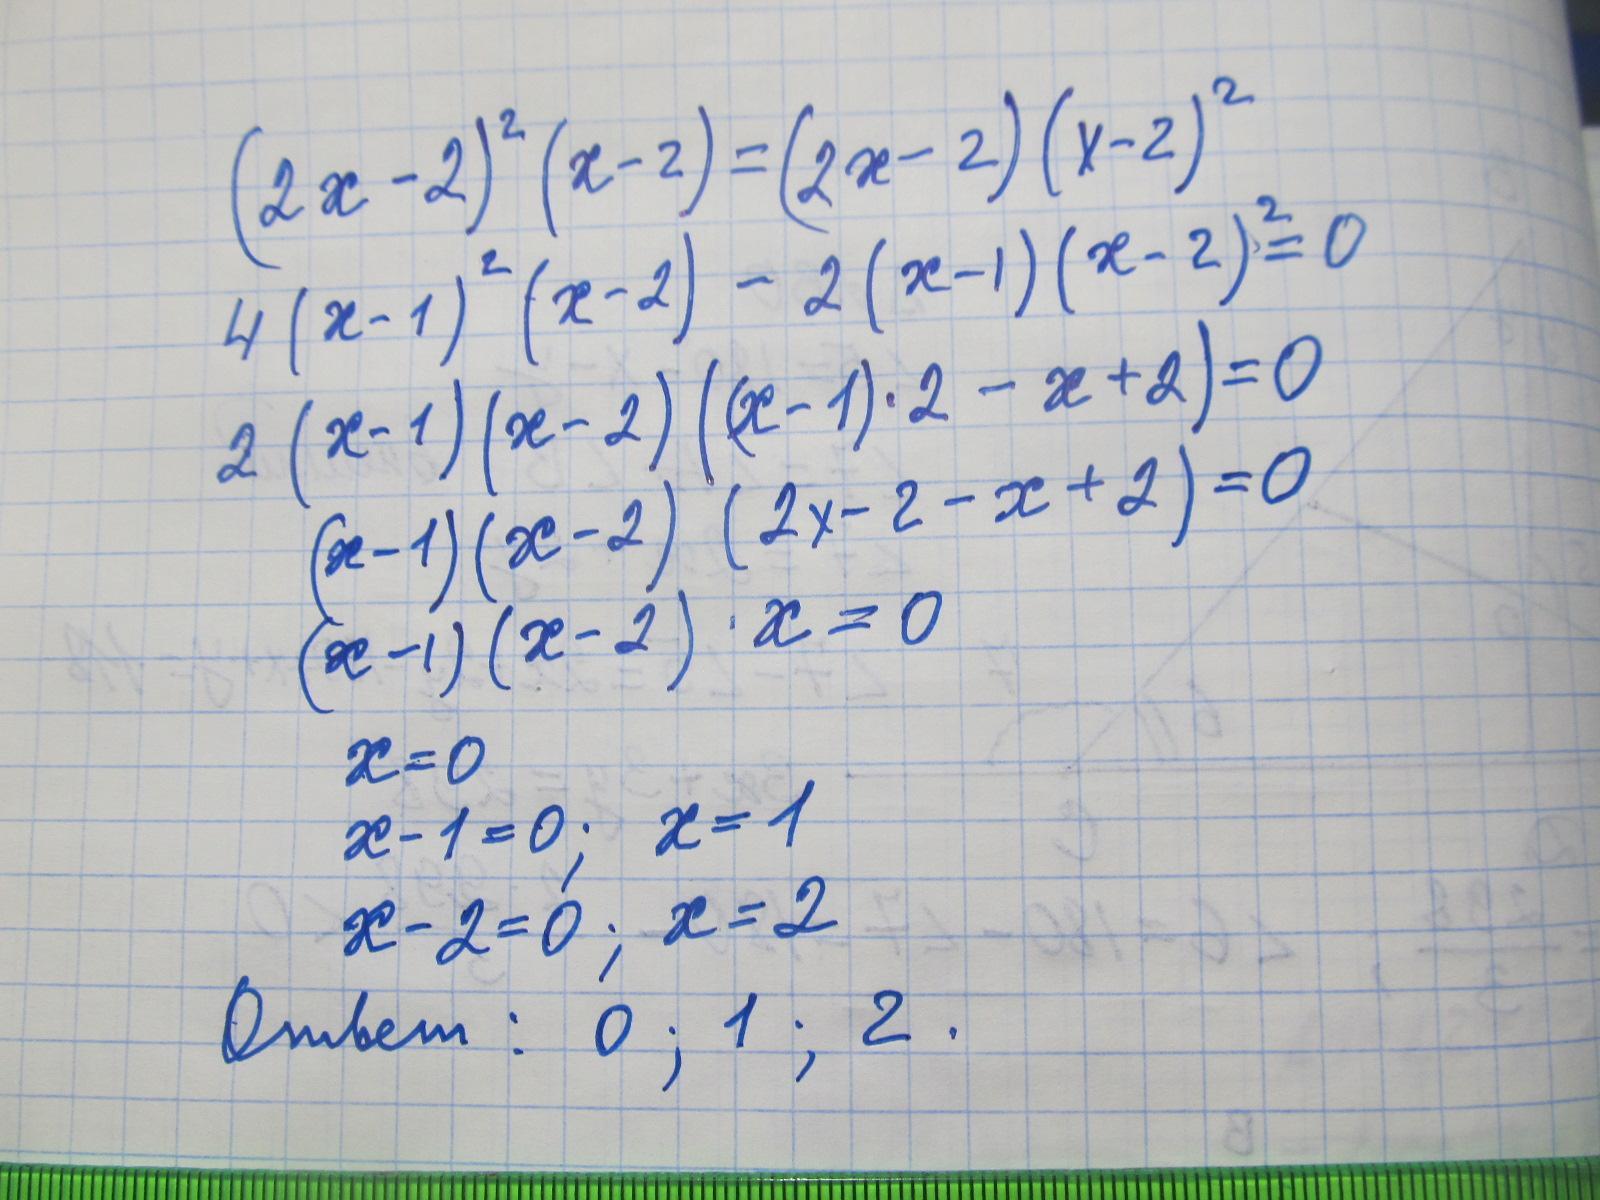 (2x-2)²(x-2)=(2x-2)(x-2)²
4(x-1)²(x-2) - 2(x-1)(x-2)²=0
2(x-1)(x-2)((x-1)·2 - x+2)=0
(x-1)(x-2)(2x-2-x+2)=0
(x-1)(x-2)·x=0
x=0
x-1=0; x=1
x-2=0; x=2
Ответ: 0; 1; 2.